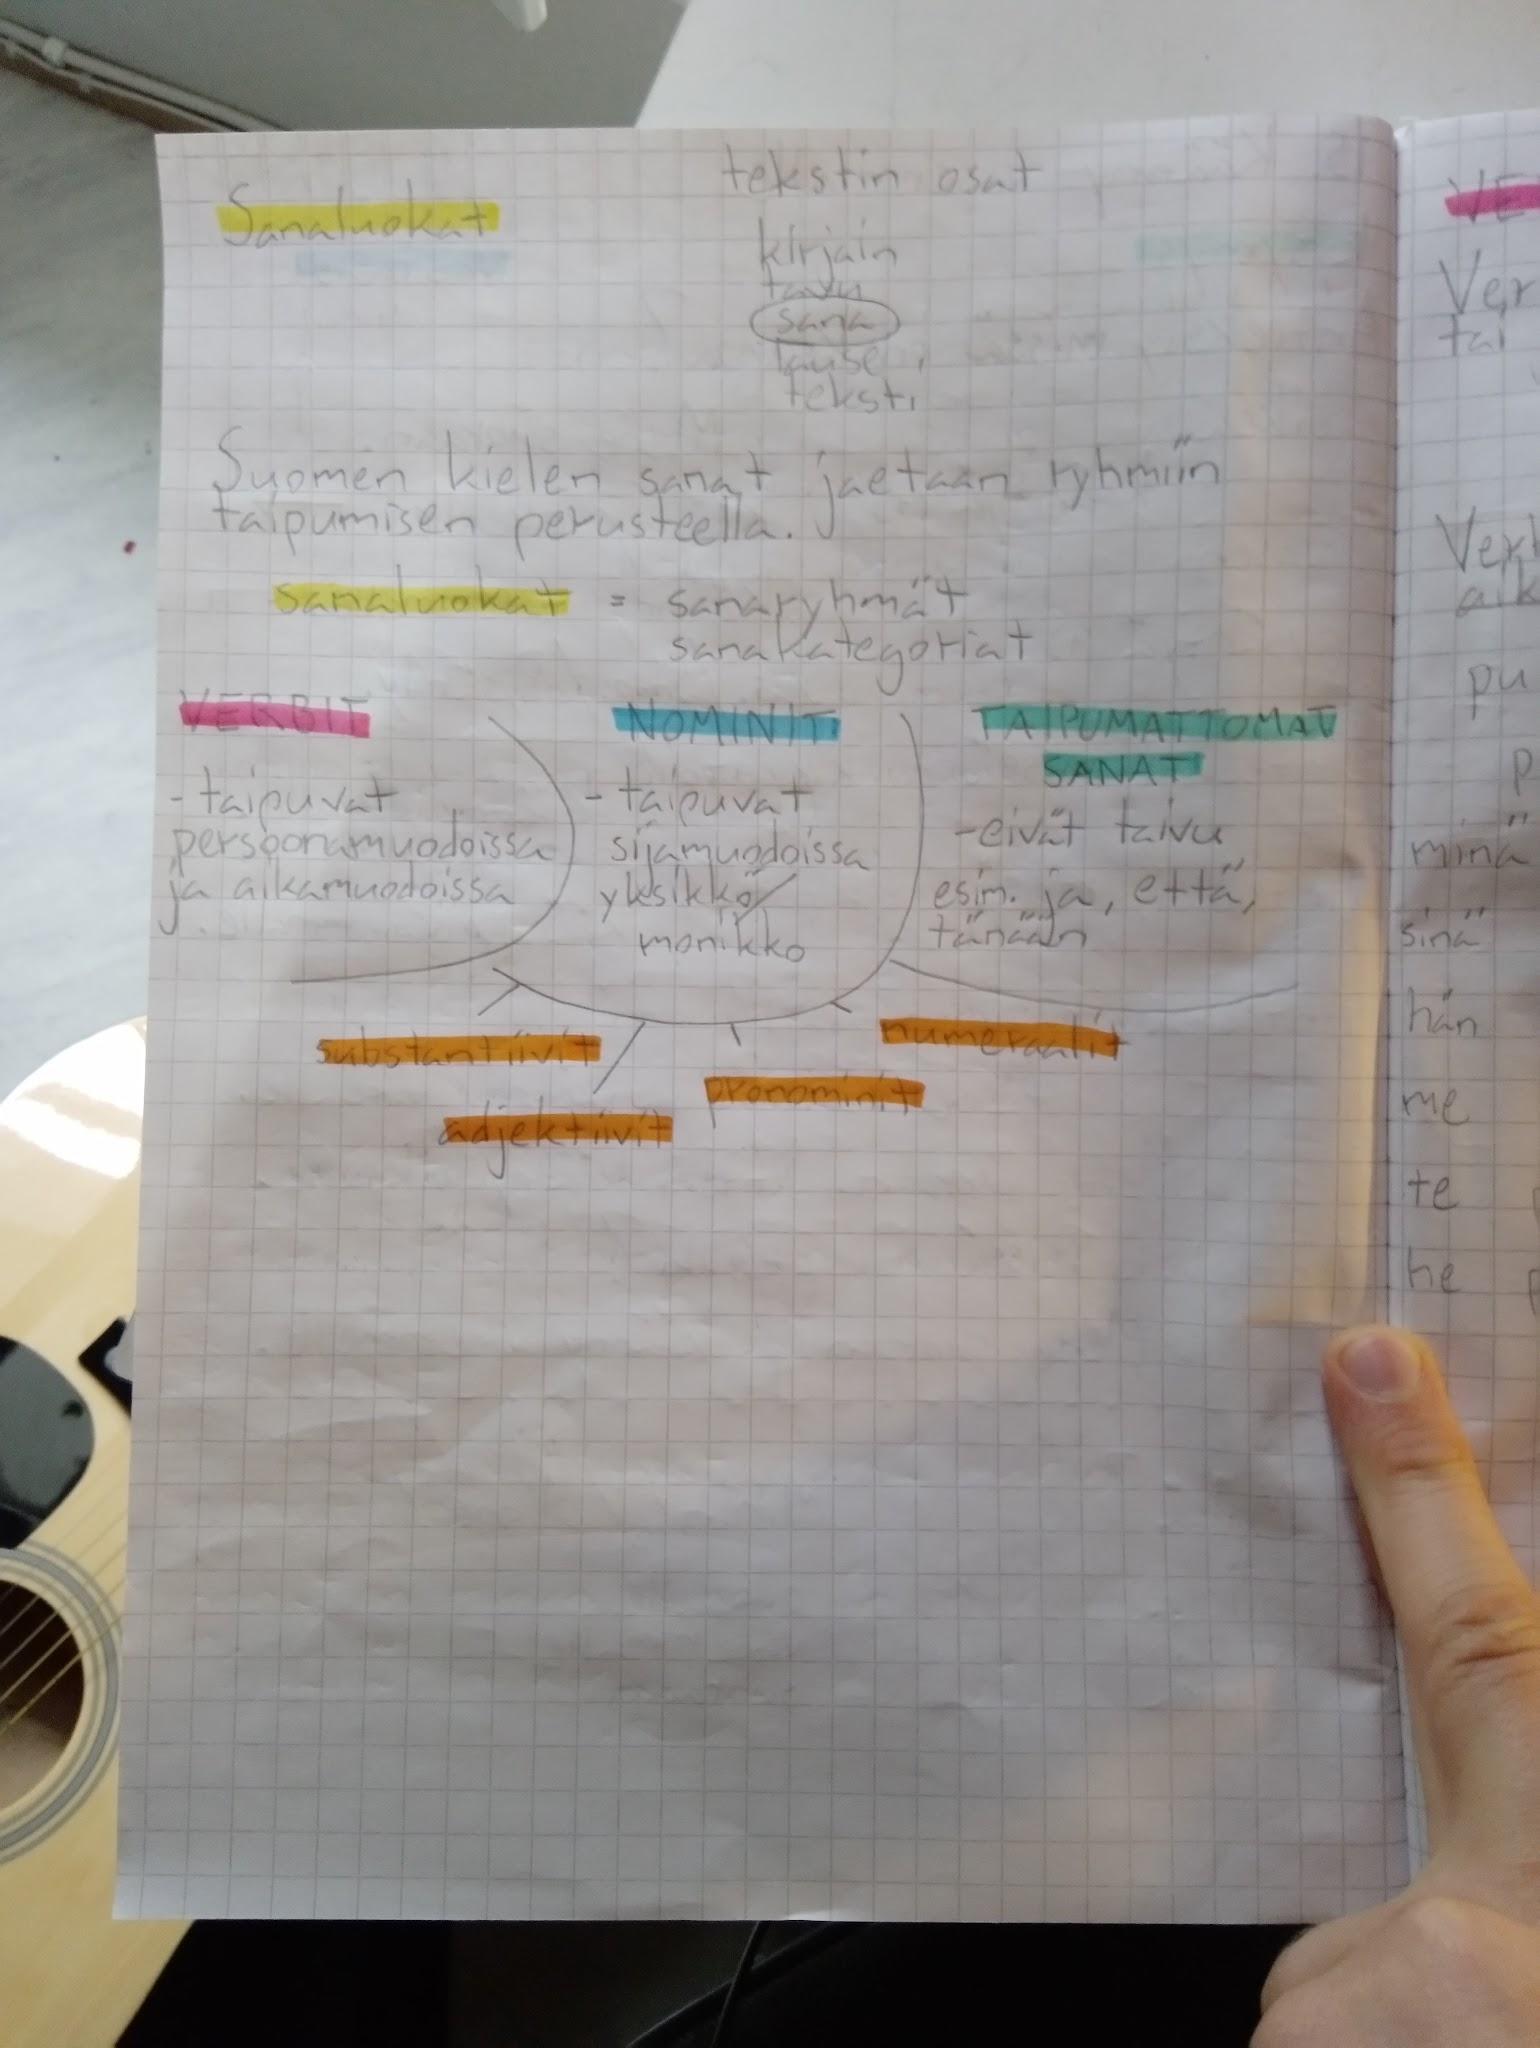 Sanaluokat
tekstin osat
kirjain
tavu
sana
lause
teksti
Suomen kielen sanat jaetaan ryhmiin
taipumisen perusteella.
sanaluokat = sanaryhmät
sanakategoriat
VERBIT
- taipuvat
persoonamuodoissa
ja aikamuodoissa
NOMINIT
- taipuvat
sijamuodoissa
yksikkö/
monikko
TAIPUMATTOMAT
SANAT
- eivät taivu
esim. ja, että,
tänään
substantiivit
adjektiivit
pronominit
numeraalit
VE
Ver
tai
Verb
aik
pu
p
minä
sinä
hän
me
te p
he p